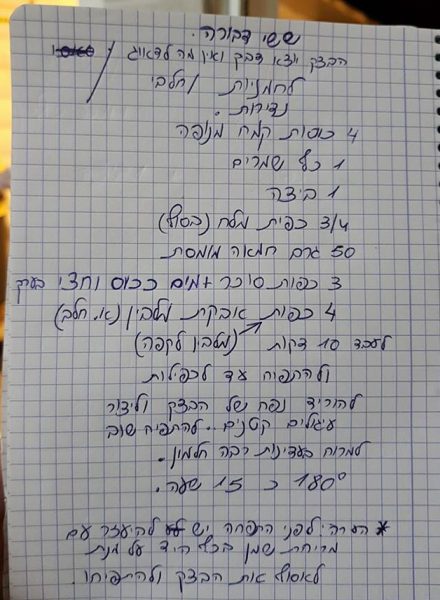 ששי דבורה.
הבצק יוצא דבק ואין מה לדאוג
לחמניות / חלבי
נדירות.
4 כוסות קמח מנופה
1 כף שמרים
1 ביצה
3/4 כפית מלח (בסוף)
50 גרם חמאה מומסת
3 כפות סוכר + מים ככוס וחצי בערך
4 כפות אבקת מלבין (או חלב)
לעבד 10 דקות (מלבין לקפה)
ולהתפיח עד לכפילות
להוריד נפח של הבצק וליצור
עיגולים קטנים.. להתפיח שוב
למרוח בעדינות רבה חלמון.
180° כ 15 שעה.
* הערה: לפני התפחה יש להיעזר עם
מריחת שמן בכף היד על מנת
לאסוף את הבצק ולהתפיחו.